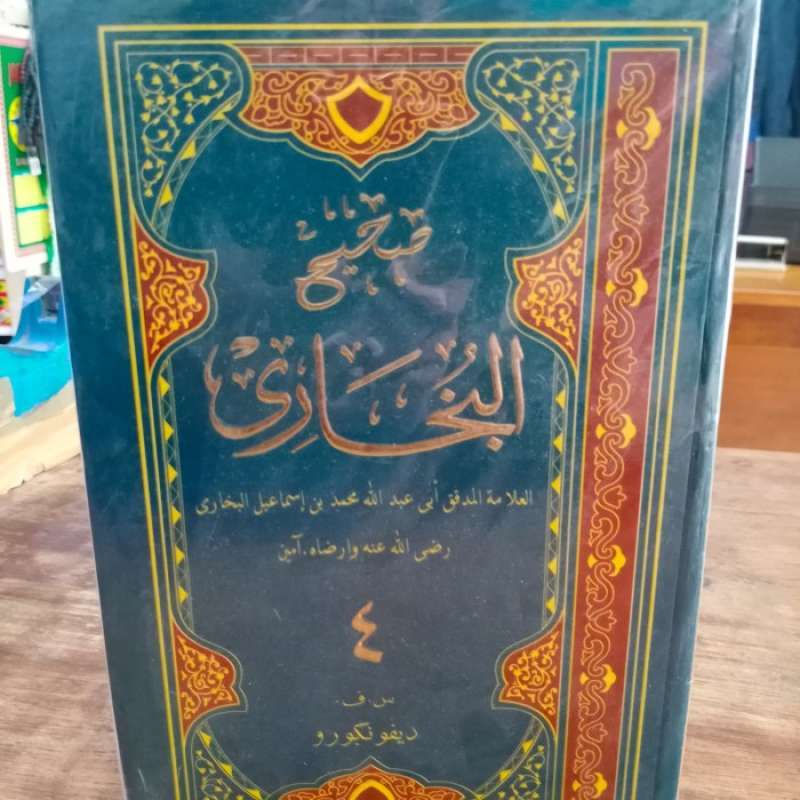 صحيح
البُخَارِيْ
العلامة المدقق أبى عبد الله محمد بن إسماعيل البخارى
رضى الله عنه وارضاه. آمين
٤
س.ف.
ديفونكبورو